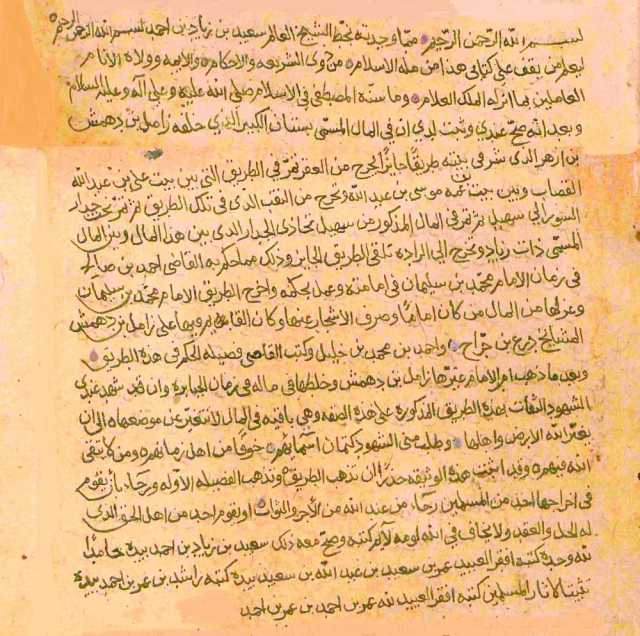 بسم الله الرحمن الرحيم مما وجدته بخط الشيخ العالم سعيد بن زياد بن احمد بسم الله الرحمن الرحيم
ليعلم من يقف على كتابي هذا من ملة الاسلام من ذوي الشريعه والاحكام والايمه وولاة الانام
العاملين بما انزله الملك العلام وما سنه المصطفى في الاسلام صلى الله عليه وعلى آله وعليه السلام
وبعد انه صح عندي وثبت لدي ان في المال المسمى بستان الكبير الذي خلفه زامل بن دهمش
بن ازهر الذي شرقي بيته طريقا جايزا تخرج من العقر تمر في الطريق التي بين بيت علي بن عبد الله
القصاب وبين بيت عمه موسى بن عبد الله وتخرج من النقب الذي في تلك الطريق ثم تمر تحت جدار
السور الى سهيل ثم تمر في المال المذكور من سهيل تحاذى الجدار الذي بين هذا المال وبين المال
المسمى ذات زياد وتخرج الى الراده تلقى الطريق الجايز وذلك مما حكم به القاضي احمد بن صالح
في زمان الامام محمد بن سليمان في امامته وعمل بحكمه واخرج الطريق الامام محمد بن سليمان
وعزلها من المال من كان اماما وصرف الاشجار عنها وكان القايم فيها على زامل بن دهمش
المشايخ درع بن جراح واحمد بن محمد بن خليل وكتب القاضي فصيله الحكم في هذه الطريق
وبعد ما ذهب امر الامام غيرها زامل بن دهمش وخلطها في ماله في زمان الجبابرة وان قد شهد عندي
الشهود الثقات بهذه الطريق المذكورة على هذه الصفه وهي باقيه في المال لا تتغير عن موضعها الى ان
يغير الله الارض واهلها وطلب مني الشهود كتمان اسمائهم خوفا من اهل زمانهم ومن لا يتقى
الله فيهم وقد اثبت هذه الوثيقه حذرا ان تذهب الطريق وتذهب الفصيله الاوله ورجاء بان يقوم
في اخراجها احد من المسلمين رجاء من عند الله من الاجر والثواب او يقوم احد من اهل الحق الذي
له الحل والعقد ولا يخاف في الله لومة لايم كتبه وصح معه ذلك سعيد بن زياد بن احمد بيده حامدا
لله وحده كتبه افقر العبيد عمر بن سعيد بن عبد الله بن سعيد بيده كتبه راشد بن عمر بن احمد بيده
تثبيتا لاثار المسلمين كتبه افقر العبيد لله عمر بن احمد بن عمر بن احمد